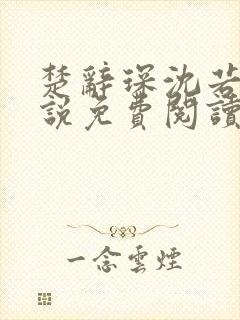 楚辭琛沈若
說免費閱讀
一念雲煙